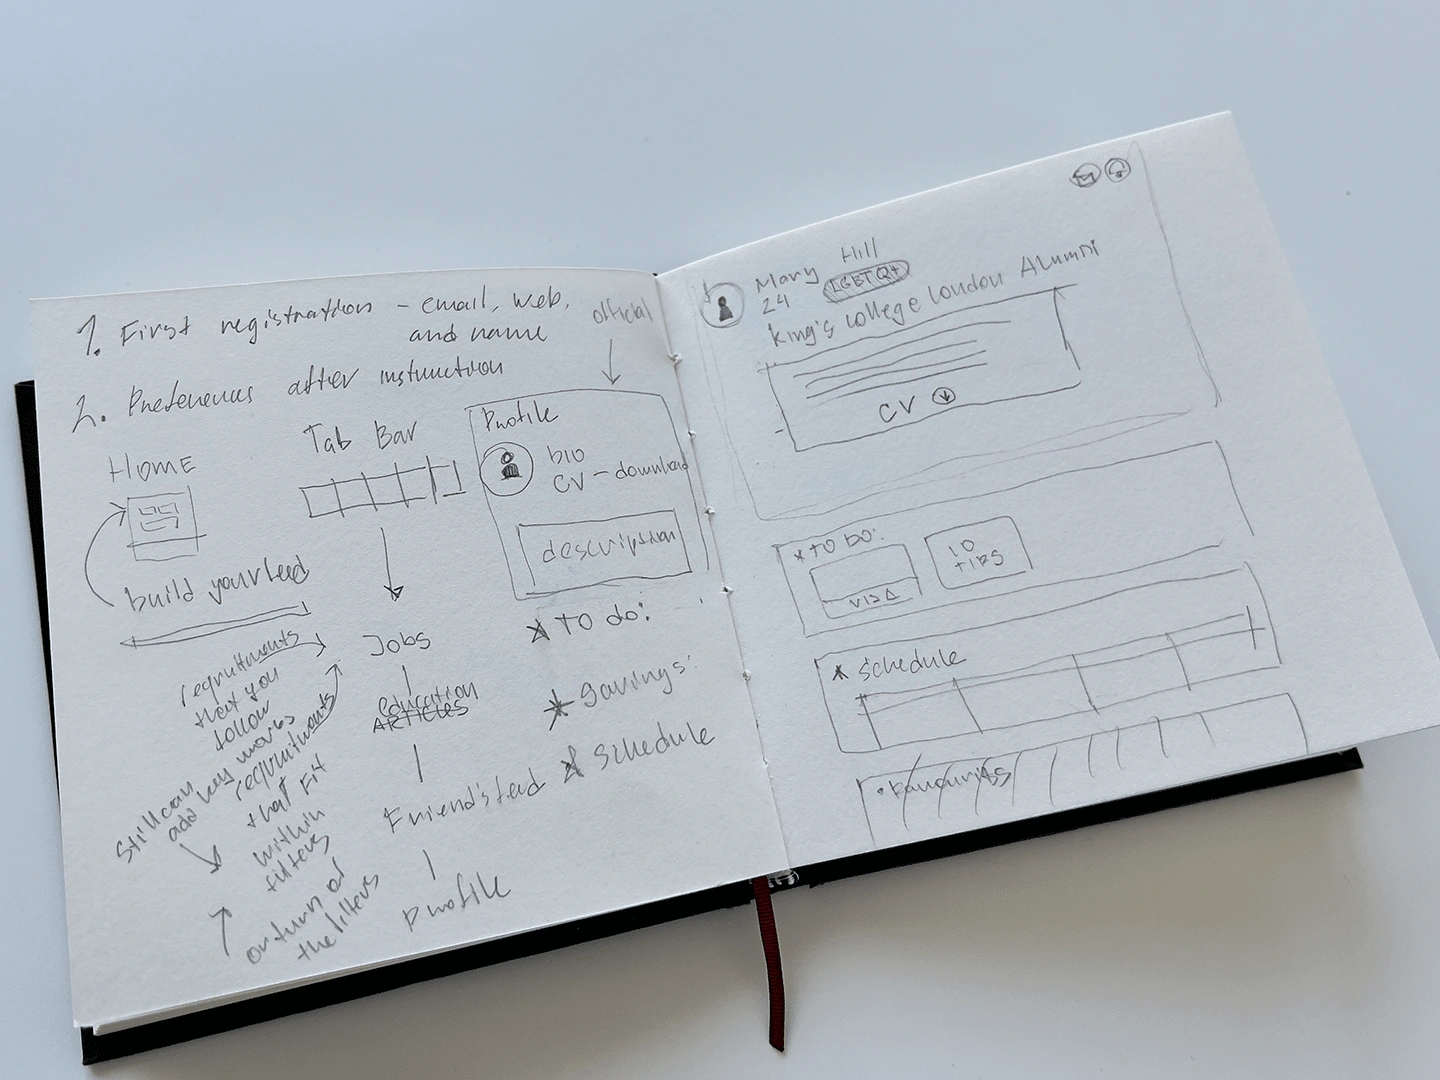 1. First registration - email, web,
and name
official
2. Preferences after instruction
HOME
Tab Bar
Profile
bio
CV - download
description
build your feed
Jobs
education
ARTICLES
Friend's feed
Profile
* To do:
* savings:
* schedule
recruitments
that you
follow
recruitments
that fit
within
filters
or turn of
the filters
still can
add key words
Mary Hill
24 LGBTQ+
King's college London Alumni
CV
* TO DO:
VISA
10
TIPS
* schedule
• Favourites